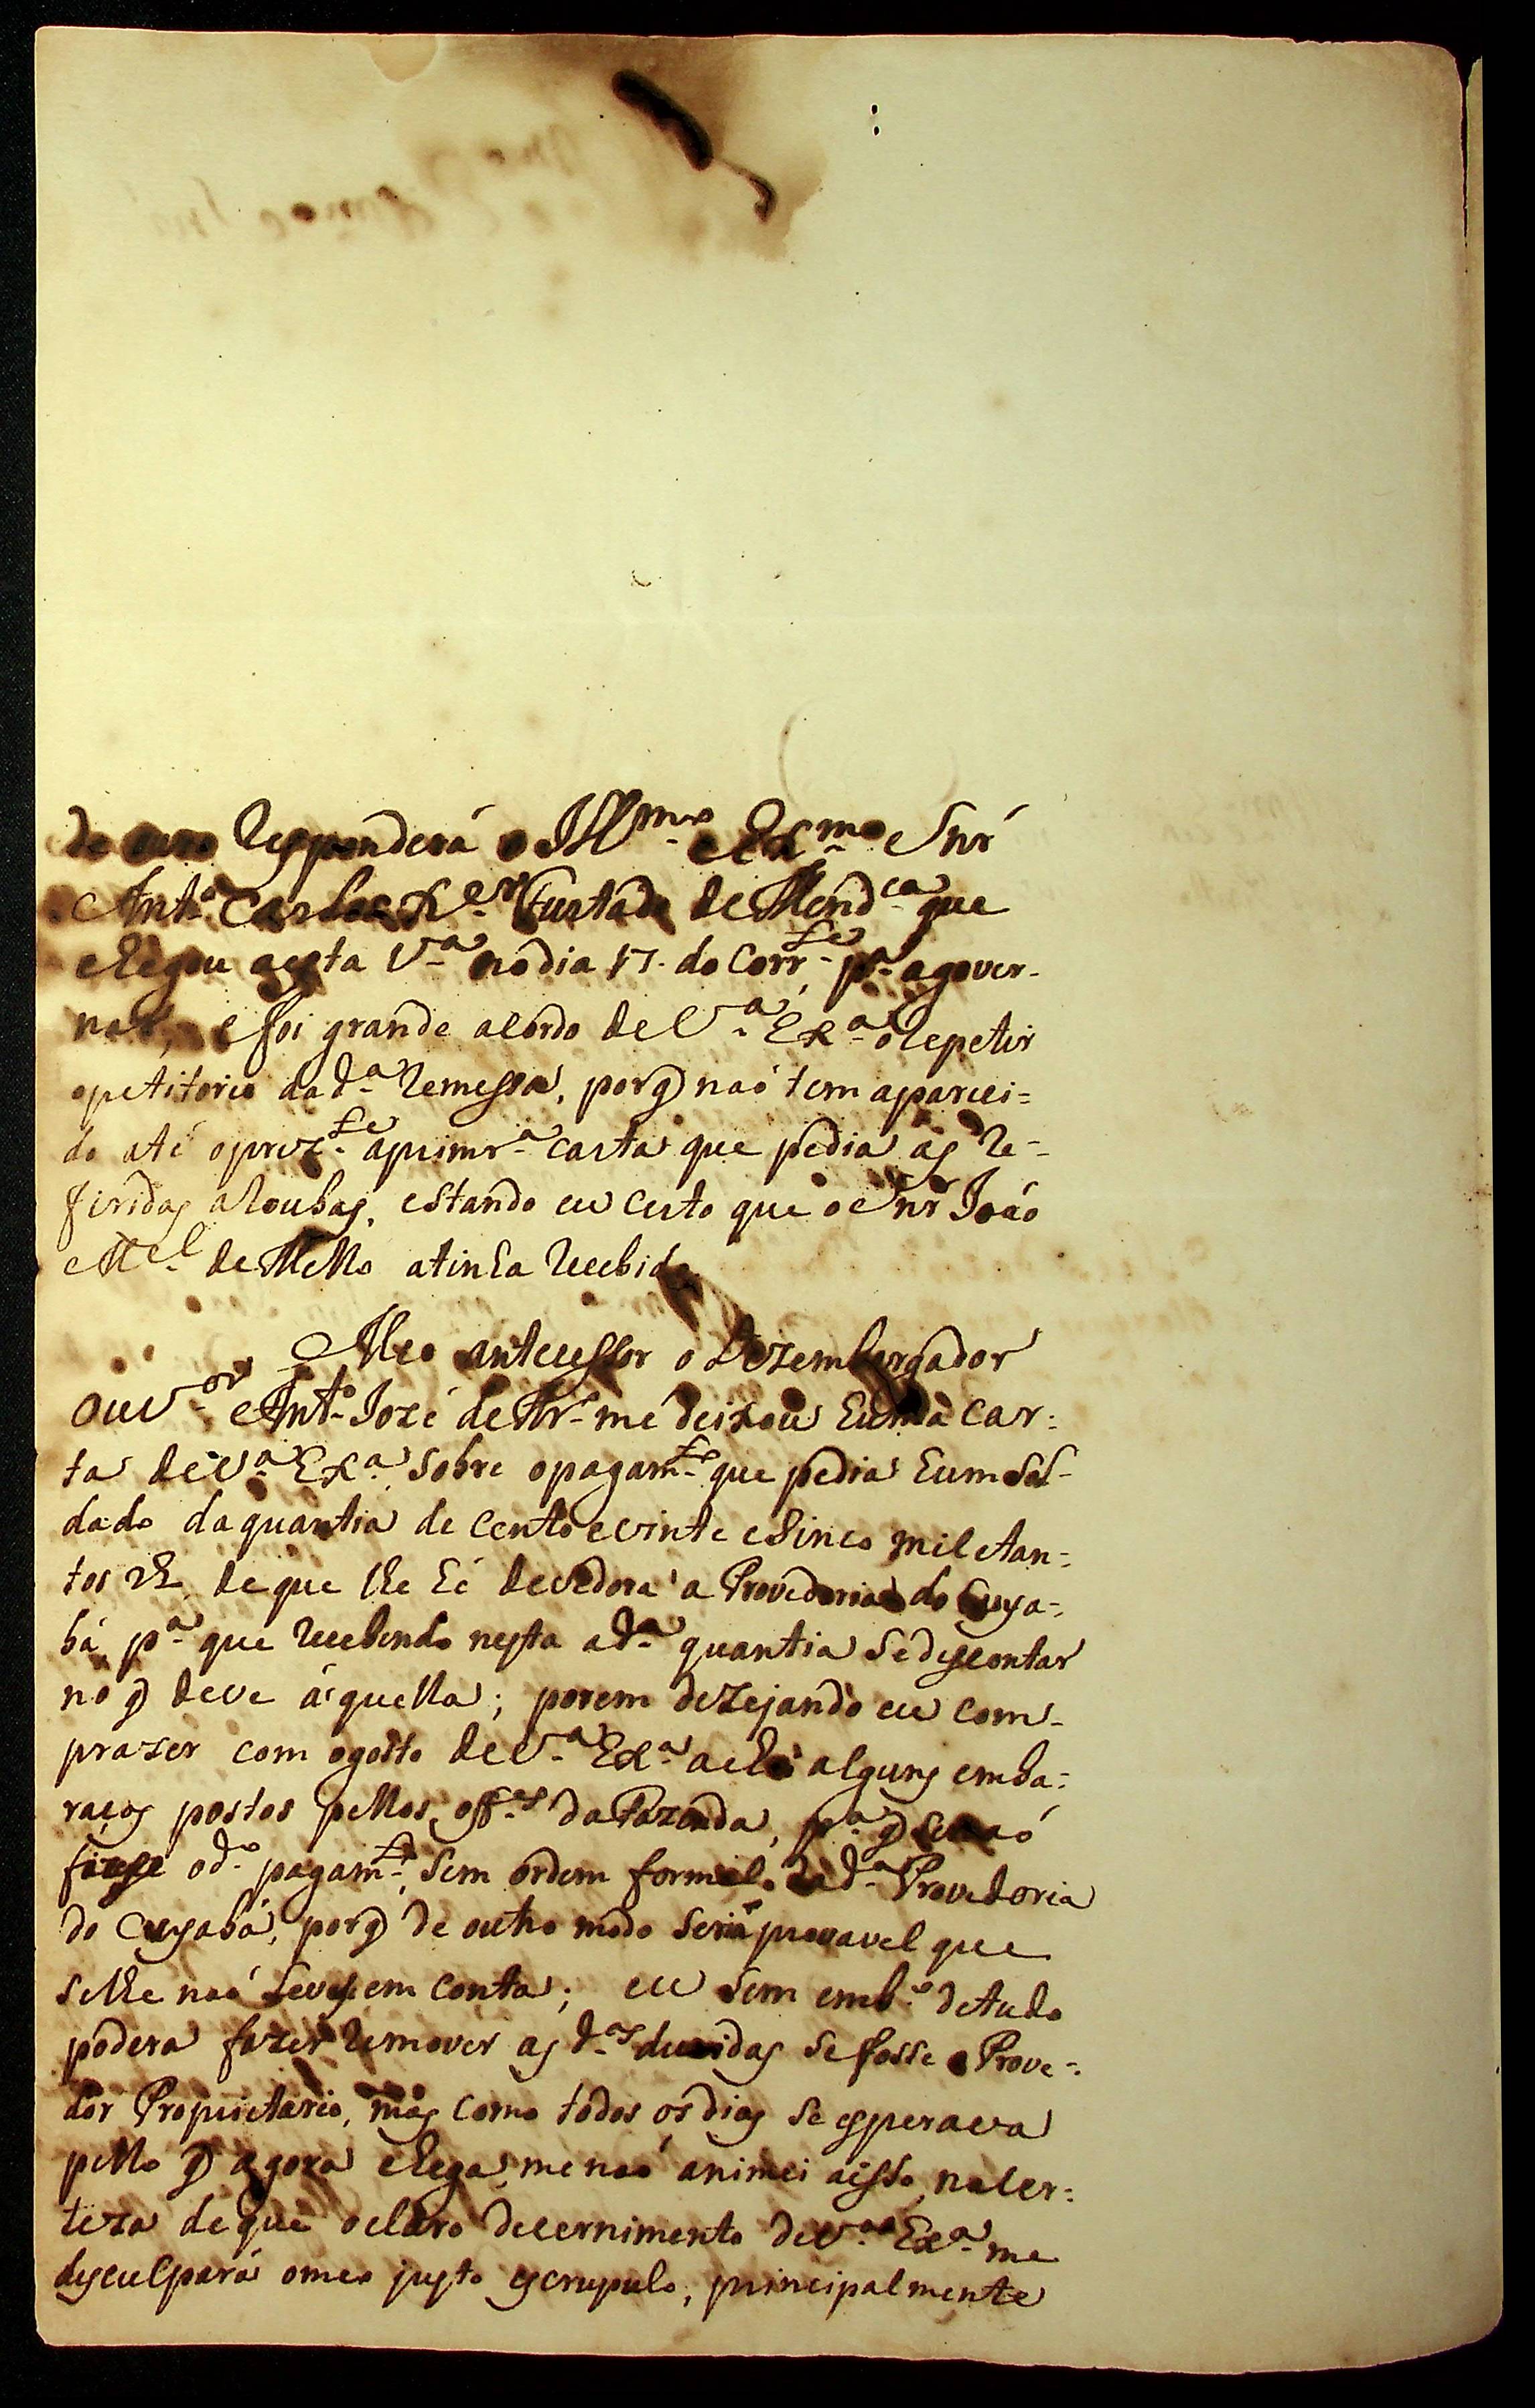 de ouro Responderá o Illmo e Exmo Snr'
Anto Carlos Furtado de Mendca que
chegou a esta Va no dia 17. do Corrte pa a gover-
nar, e foi grande acordo de Va Exa o repetir
o petitorio da da Remessa, porq naó tem apareci=
do até o prezte a primra carta que pedia as Re-
firidas aRoubas, estando eu certo que o Snr' Joáo
Mel de Mello a tinha recebido
Meo antecessor o Dezembargador
ouvor Anto Jozé de Ar.o me deixou huma car:
ta de Va Exa sobre o pagamto que pedia hum Sol-
dado da quantia de Cento e vinte e Sinco mil e tan=
tos rs de que lhe hé devedora a Provedoria do Cuya=
bá, pa que recebendo nesta a da quantia se descontar
no q deve áquella; porem dezejando eu com-
prazer com o gosto de Va Exa achei alguns emba=
raços postos pellos offes da Fazenda, pa q se naó
fizese o do pagamto, sem ordem formal da da Provedoria
do Cuyabá, porq de outro modo seria provavel que
se lhe naó levase em conta; eu sem embo de tudo
podera fazer remover as das duvidas se fosse o Prove=
dor Proprietario, mas como todos os dias se esperava
pello q agora chega, me naó animei a isso, na Cer=
teza de que o claro decernimento de Va Exa me
desculpará o meo justo escrupulo, principalmente